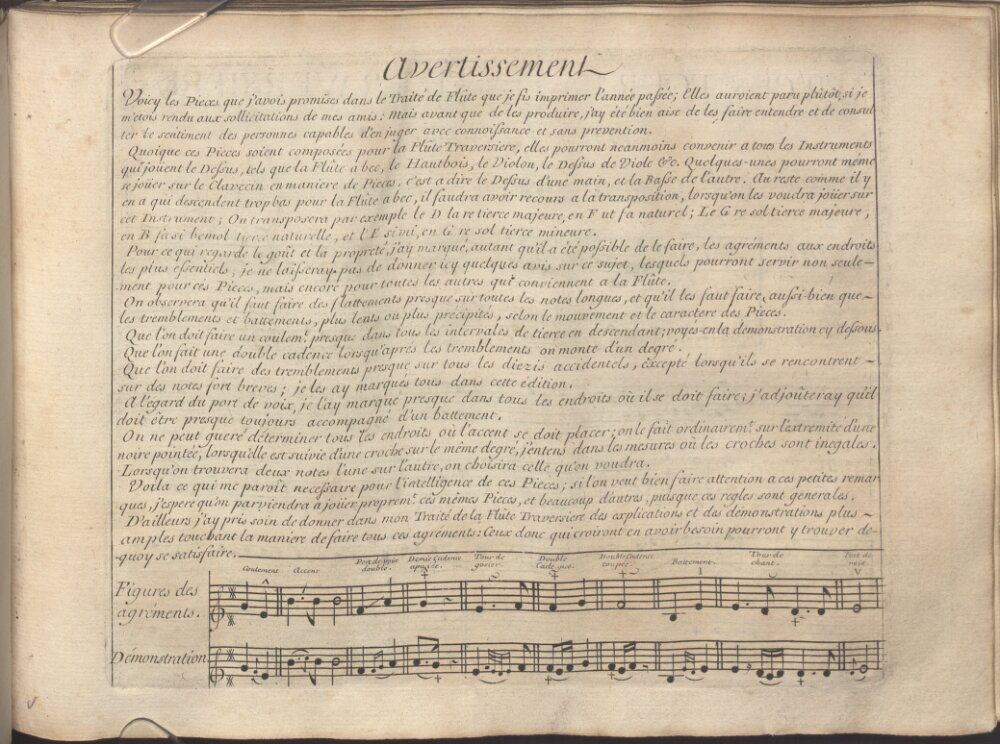 Avertissement
Voicy les Pieces que j'avois promises dans le Traité de Flûte que je fis imprimer l'année passée; Elles auroient paru plûtôt, si je
m'etois rendu aux sollicitations de mes amis: Mais avant que de les produire, j'ay été bien aise de les faire entendre et de consul
ter le sentiment des personnes capables d'en juger avec connoissance et sans prevention.
Quoique ces Pieces soient composées pour la Flûte Traversiere, elles pourront neanmoins convenir a tous les Instruments
qui joüent le Dessus, tels que la Flûte a bec, le Hautbois, le Violon, le Dessus de Viole &c. Quelques-unes pourront même
se joüer sur le Clavecin en maniere de Pieces, c'est a dire le Dessus d'une main, et la Basse de l'autre. Au reste comme il y
en a qui descendent trop bas pour la Flûte a bec, il faudra avoir recours a la transposition, lorsqu'on les voudra joüer sur
cet Instrument; On transposera par exemple le D la re tierce majeure, en F ut fa naturel; Le G re sol tierce majeure,
en B fa si bemol tierce naturelle, et l'E si mi, en G re sol tierce mineure.
Pour ce qui regarde le goût et la propreté, j'ay marqué, autant qu'il a été possible de le faire, les agréments aux endroits
les plus essentiels; je ne laisseray pas de donner icy quelques avis sur ce sujet, lesquels pourront servir non seule-
ment pour ces Pieces, mais encore pour toutes les autres qui conviennent a la Flûte.
On observera qu'il faut faire des flattements presque sur toutes les notes longues, et qu'il les faut faire, aussi-bien que
les tremblements et battements, plus lents ou plus précipités, selon le mouvement et le caractere des Pieces.
Que l'on doit faire un coulem.t presque dans tous les intervales de tierce en descendant; voyes-en la demonstration cy dessous.
Que l'on fait une double cadence lorsqu'aprés les tremblements on monte d'un degré.
Que l'on doit faire des tremblements presque sur tous les diezis accidentels, excepté lorsqu'ils se rencontrent
sur des notes fort breves; je les ay marqués tous dans cette édition.
A l'égard du port de voix, je l'ay marqué presque dans tous les endroits où il se doit faire; j'adjoûteray qu'il
doit être presque toujours accompagné d'un battement.
On ne peut gueré déterminer tous les endroits où l'accent se doit placer; on le fait ordinairem.t sur l'extremité d'une
noire pointée, lorsqu'elle est suivie d'une croche sur le même degré, j'entens dans les mesures où les croches sont inegales.
Lorsqu'on trouvera deux notes l'une sur l'autre, on choisira celle qu'on voudra.
Voila ce qui me paroît necessaire pour l'intelligence de ces Pieces; si l'on veut bien faire attention a ces petites remar
ques, j'espere qu'on parviendra a joüer proprem.t ces mêmes Pieces, et beaucoup d'autres, puisque ces regles sont generales.
D'ailleurs j'ay pris soin de donner dans mon Traité de la Flûte Traversiere des explications et des démonstrations plus
amples touchant la maniere de faire tous ces agréments: Ceux donc qui croiront en avoir besoin pourront y trouver de-
quoy se satisfaire.
Coulement Accent Port de voix double. Demie Cadence apuiée. Tour de gosier. Double Cadence. Double Cadence coupée. Battement. Tour de chant. Port de voix
Figures des
agréments.
Démonstration